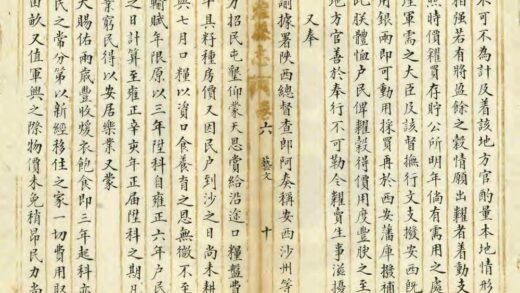 米不可不為計及着該地方官酌量本地情形
相强若有將盈餘之穀情願出糶者着動支
照時價糴買存貯公所明年倘有需用之處
陸軍需之大臣及該督撫行文支撥安西既
用銀兩即可動用採買再於安西藩庫撥補
此朕體恤户民俾糶穀得價用度豐腴之至
地方官善於奉行不可勒令糶賣生事滋擾
又奉
諭據署陝西總督查郎阿奏稱安西沙州等
志
六
藝文
十
力招民屯墾仰蒙天恩賞給沿途口糧盤費
牛具籽種房價又因民户到沙之日尚未耕
與七月口糧以資口食養育之恩無微不至
輸賦年限原以三年陞科自雍正六年户民
之日計算至雍正辛亥年正届陞科之期
業窮民得以安居樂業又蒙
天賜佑兩歲豐收煖衣飽食即三年起科亦
民之常分第以新經移住之家一切費用取
田畝又值軍興之際物價未免稍昂民力尚